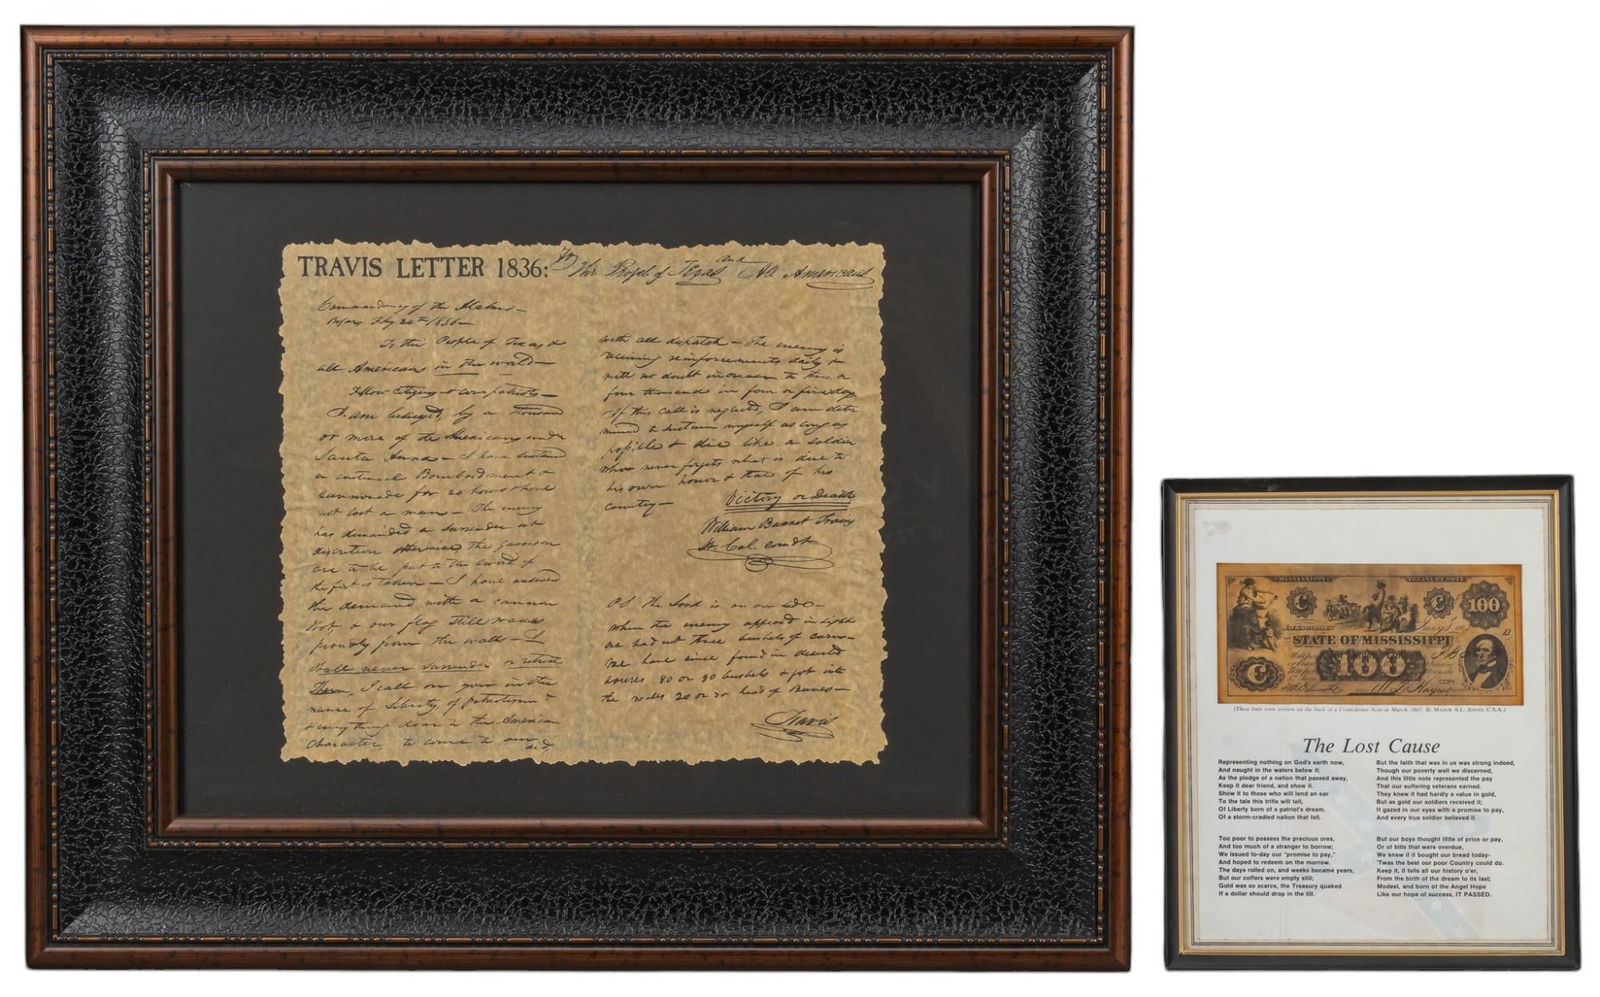 TRAVIS LETTER 1836: To The People of Texas and All Americans
Commandancy of the Alamo—
Bejar, Feby 24th 1836—
To the People of Texas &
all Americans in the world—
Fellow Citizens & compatriots—
I am besieged, by a thousand
or more of the Mexicans under
Santa Anna— I have sustained
a continual Bombardment &
cannonade for 24 hours & have
not lost a man— The enemy
has demanded a surrender at
discretion, otherwise, the garrison
are to be put to the sword, if
the fort is taken— I have answered
the demand with a cannon
shot, & our flag still waves
proudly from the walls— I
shall never surrender or retreat
Then, I call on you in the
name of Liberty, of patriotism &
everything dear to the American
character, to come to our aid,
with all dispatch— The enemy is
receiving reinforcements daily &
will no doubt increase to three or
four thousand in four or five days.
If this call is neglected, I am deter
mined to sustain myself as long as
possible & die like a soldier
who never forgets what is due to
his own honor & that of his
country—
Victory or Death
William Barret Travis
Lt. Col. comdt
P.S. The Lord is on our side—
When the enemy appeared in sight
we had not three bushels of corn—
We have since found in deserted
houses 80 or 90 bushels & got into
the walls 20 or 30 head of Beeves—
Travis
MISSISSIPPI TREASURY NOTE
C C 100
STATE OF MISSISSIPPI
100
C
COPY
(These lines were written on the back of a Confederate Note in March, 1865. By MAJOR A.L. JONAS, C.S.A.)
The Lost Cause
Representing nothing on God's earth now,
And naught in the waters below it;
As the pledge of a nation that passed away,
Keep it dear friend, and show it.
Show it to those who will lend an ear
To the tale this trifle will tell,
Of Liberty born of a patriot's dream,
Of a storm-cradled nation that fell.
Too poor to possess the precious ores,
And too much of a stranger to borrow;
We issued to-day our "promise to pay,"
And hoped to redeem on the morrow.
The days rolled on, and weeks became years,
But our coffers were empty still;
Gold was so scarce, the Treasury quaked
If a dollar should drop in the till.
But the faith that was in us was strong indeed,
Though our poverty well we discerned,
And this little note represented the pay
That our suffering veterans earned.
They knew it had hardly a value in gold,
But as gold our soldiers received it;
It gazed in our eyes with a promise to pay,
And every true soldier believed it.
But our boys thought little of price or pay,
Or of bills that were overdue,
We knew if it bought our bread today-
'Twas the best our poor Country could do.
Keep it, it tells all our history o'er,
From the birth of the dream to its last;
Modest, and born of the Angel Hope
Like our hope of success, IT PASSED.